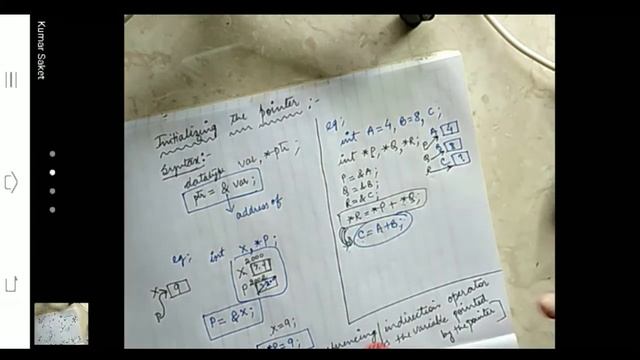 Kumar Saket
Initializing the pointer :-
Syntax:-
datatype var, *ptr ;
ptr = & var ;
address of
eg; int X, *P;
2000
X
P
X 9
P
P = &X;
X=9;
*P=9;
eg;
int A=4, B=8, C;
int *P, *Q, *R;
P = &A;
Q = &B;
R = &C;
*R = *P + *Q;
C = A+B;
A 4
P
B 8
Q
C
R
indirection operator
the variable pointed
by the pointer]